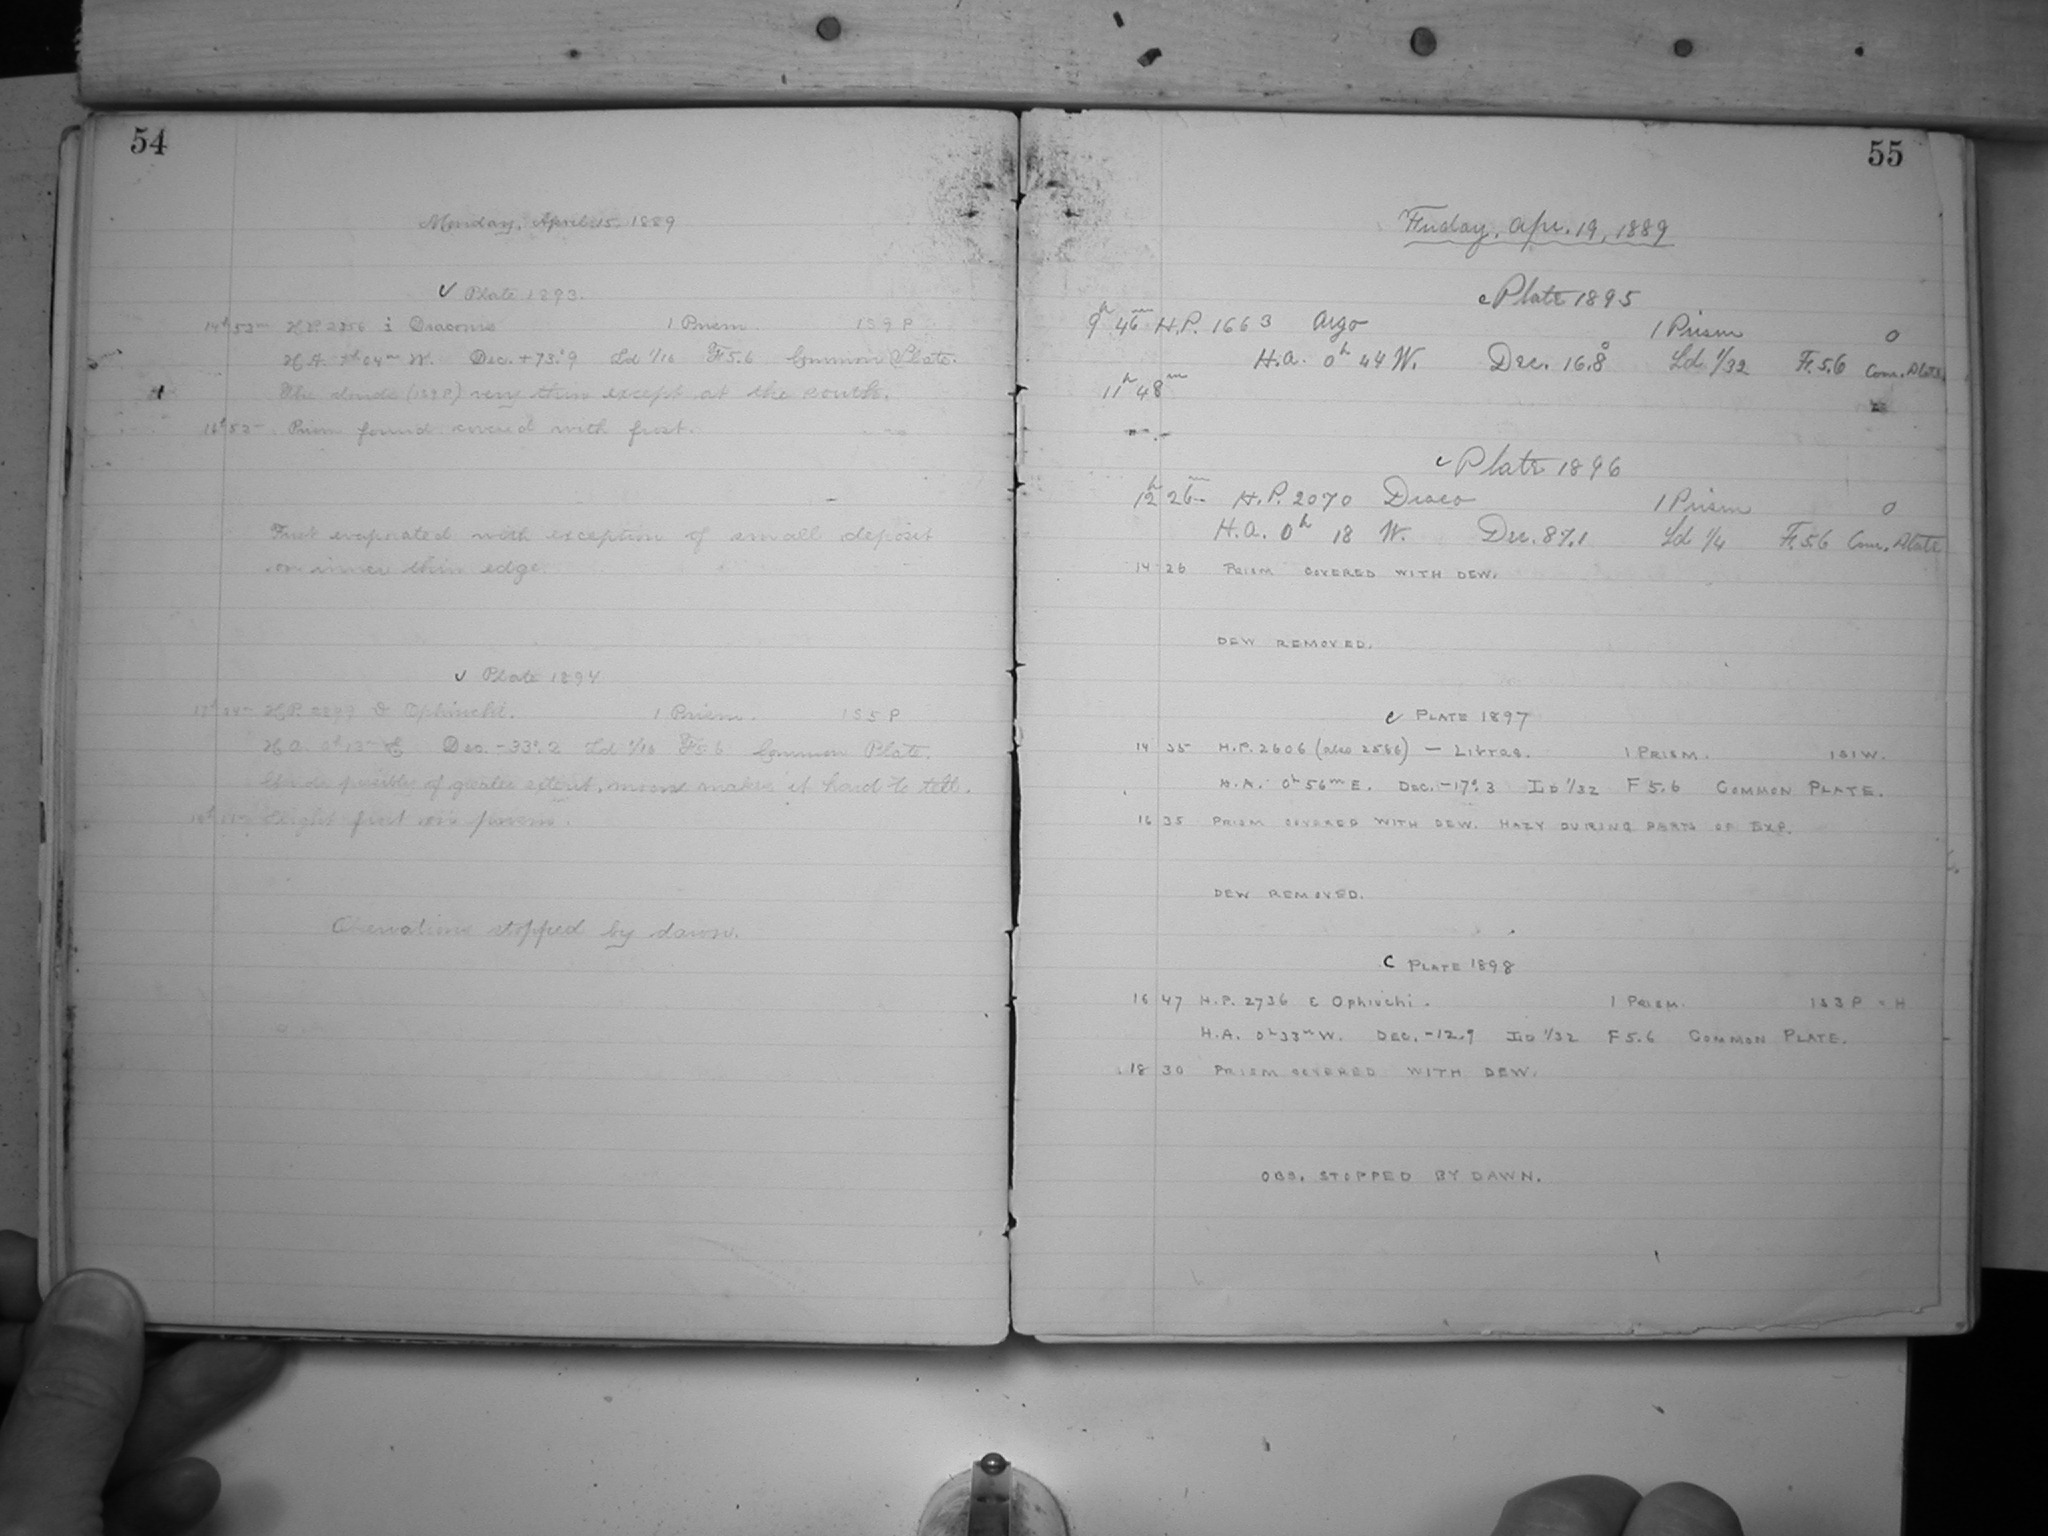 54
Monday, April 15, 1889
✓ Plate 1893.
14h 52m H.P. 2856 i Draconis 1 Prism. 159 P
H.A. 04m W. Dec. +73.°9 Ld 1/16 F 5.6 Common Plate.
The clouds (159 P) very thin except at the south.
16h 52m Prism found covered with frost.
Frost evaporated with exception of small deposit
on inner thin edge.
✓ Plate 1894
H.P. Ophiuchi. 1 Prism. 155 P
H.A. 0h 13m E Dec. -33°.2 Ld 1/16 F 5.6 Common Plate.
Clouds possibly of greater extent, moon makes it hard to tell.
Slight frost on prism.
Observations stopped by dawn.
55
Friday, Apr. 19, 1889
c Plate 1895
9h 46m H.P. 1663 Argo 1 Prism 0
H.A. 0h 44 W. Dec. 16.8° Ld 1/32 F. 5.6 Com. Plate
11h 48m
c Plate 1896
12h 26m H.P. 2070 Draco 1 Prism 0
H.A. 0h 18 W. Dec. 87.1 Ld 1/4 F. 5.6 Com. Plate
14 26 PRISM COVERED WITH DEW.
DEW REMOVED.
c PLATE 1897
14 35 H.P. 2606 (also 2586) — Librae. 1 PRISM. 181 W.
H.A. 0h 56m E. DEC. -17°.3 LD 1/32 F 5.6 COMMON PLATE.
16 35 PRISM COVERED WITH DEW. HAZY DURING PARTS OF EXP.
DEW REMOVED.
C PLATE 1898
16 47 H.P. 2736 ε Ophiuchi. 1 PRISM. 183 P H
H.A. 0h 33m W. DEC. -12.9 LD 1/32 F 5.6 COMMON PLATE.
18 30 PRISM COVERED WITH DEW.
OBS. STOPPED BY DAWN.